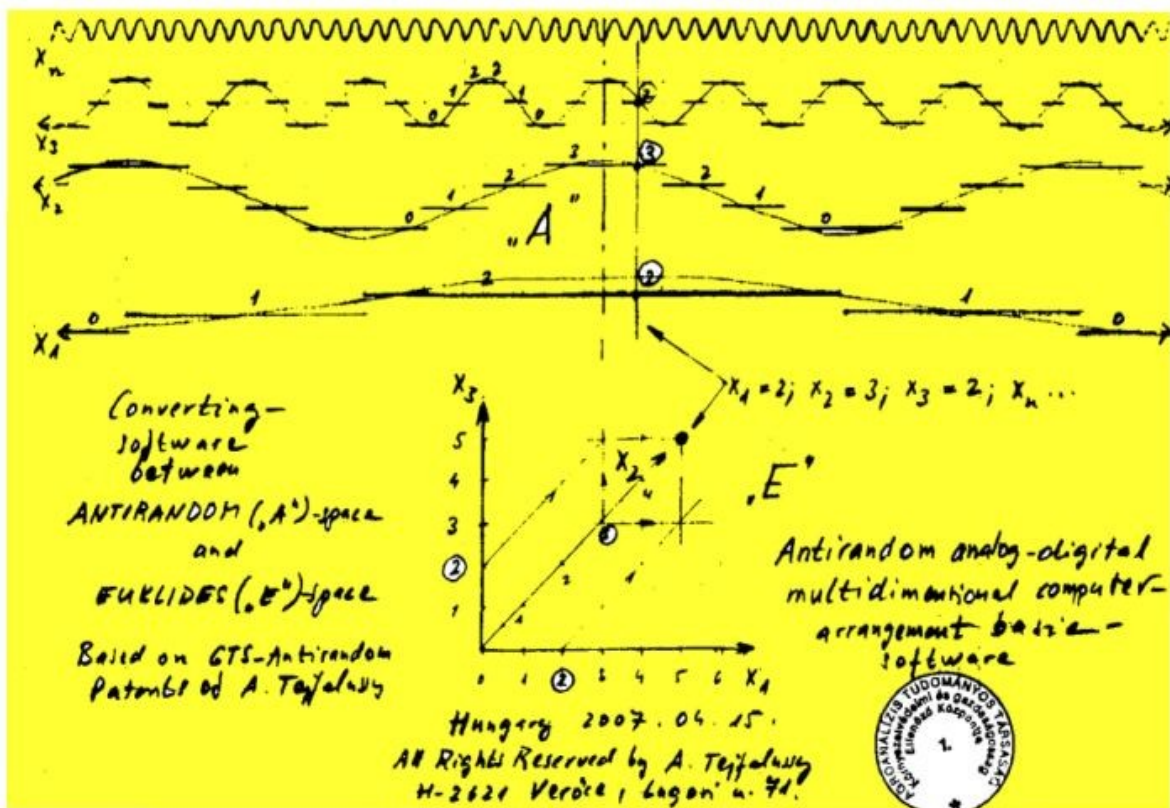 Xn
2 2
1 1 2
0 0
X3
3 3
2 2
X2
1 1
0 0
„A"
2 2
1 1
0 0
X1
X3
X1 = 2; X2 = 3; X3 = 2; Xn ...
Converting-
software
between
ANTIRANDOM („A")-space
and
EUKLIDES („E")-space
Based on GTS-Antirandom
Patents of A. Tejfalussy
5
4
3
2
1
X2
„E"
0 1 2 3 4 5 6 X1
Antirandom analog-digital
multidimentional computer-
arrangement basic-
software
Hungary 2007.04.15.
All Rights Reserved by A. Tejfalussy
H-2621 Verőce, Lugosi u. 71.
AGROANALÍZIS TUDOMÁNYOS TÁRSASÁG
Környezetvédelmi és gazdaságossági
Ellenőrző Központja
1.